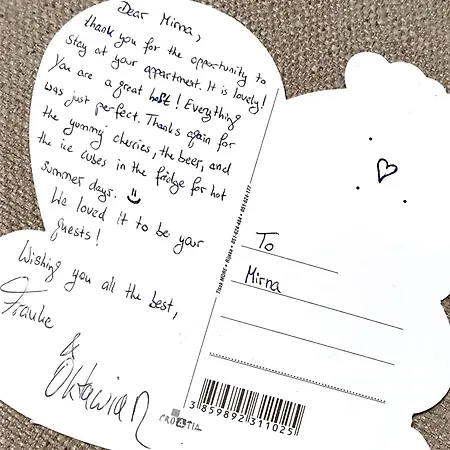 Dear Mirna,
thank you for the opportunity to
stay at your appartment. It is lovely!
You are a great host! Everything
was just perfect. Thanks again for
the yummy cherries, the beer, and
the ice cubes in the fridge for hot
summer days.
We loved it to be your
guests!
Wishing you all the best,
Frauke
&
Oktawian
To
Mirna
Tisak MORE • Rijeka • 051-624-484 • 051-624-177
3 859892 311025
CROATIA